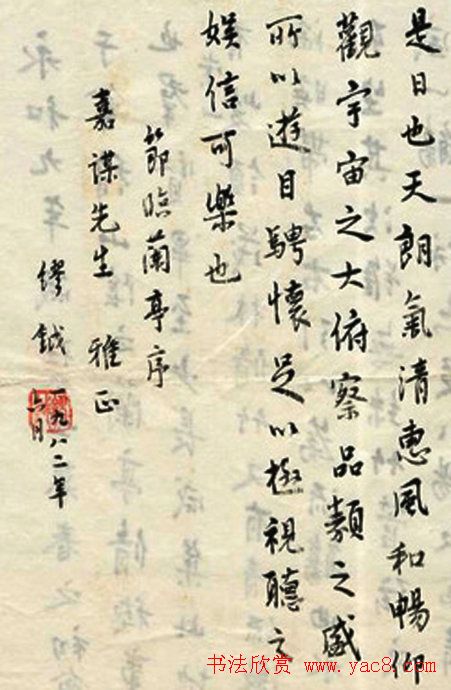 是日也天朗氣清惠風和暢仰
觀宇宙之大俯察品類之盛
所以遊目騁懷足以極視聽之
娱信可樂也
節臨蘭亭序
嘉謀先生 雅正
繆鉞
一九八二年
六月
书法欣赏 www.yac8.com